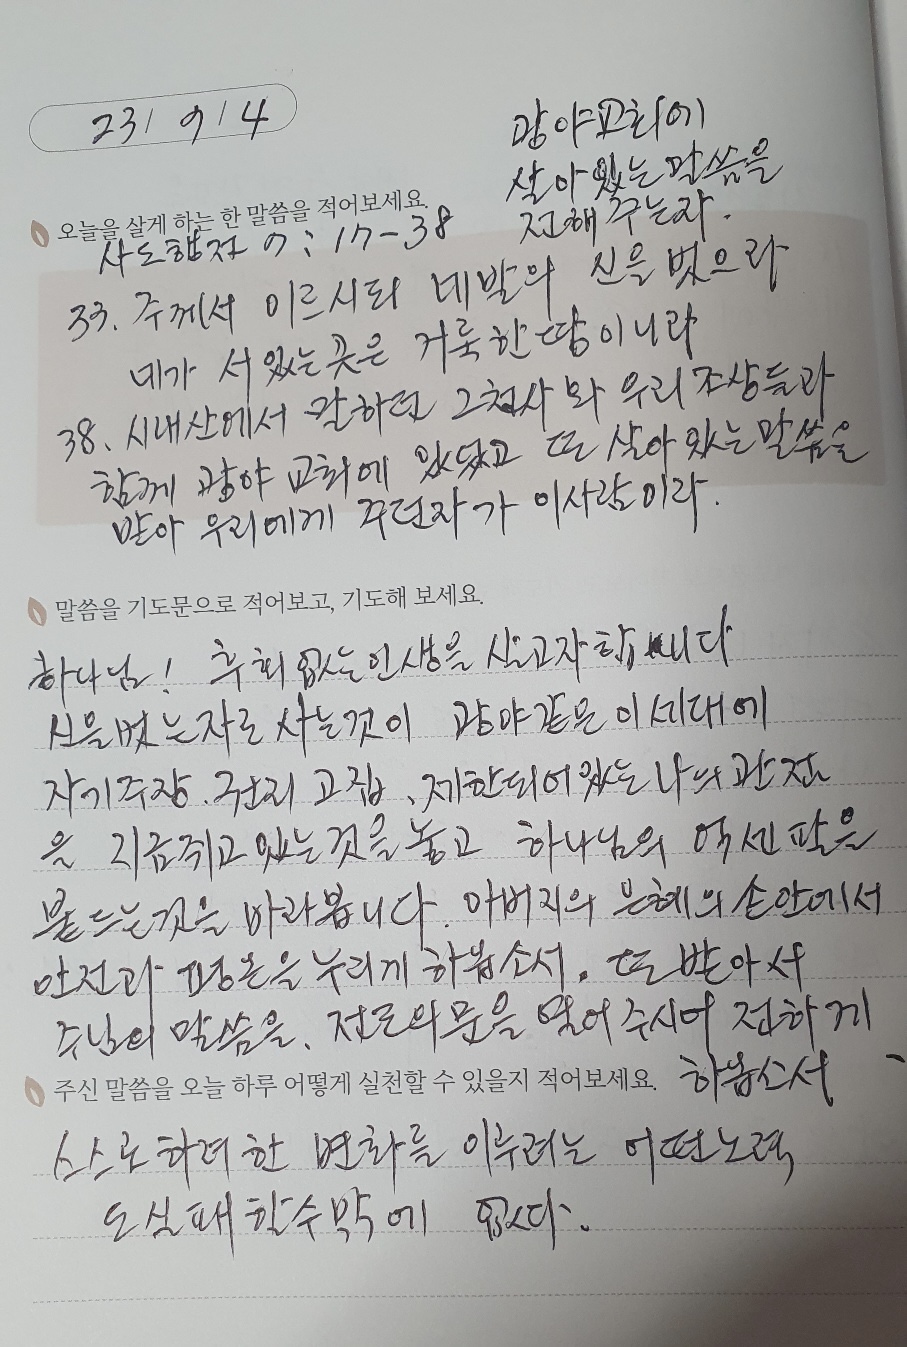 23/ 9/ 4
광야교회에
살아있는 말씀을
전해 주는자.
오늘을 살게 하는 한 말씀을 적어보세요.
사도행전 7:17-38
33. 주께서 이르시되 네발의 신을 벗으라
네가 서있는 곳은 거룩한 땅이니라
38. 시내산에서 말하던 그천사와 우리 조상들과
함께 광야 교회에 있었고 또 살아 있는 말씀을
받아 우리에게 주던자가 이사람이라.
말씀을 기도문으로 적어보고, 기도해 보세요.
하나님! 후회 없는 인생을 살고자 합니다
신을벗는자로 사는것이 광야같은 이세대에
자기주장. 권리 고집, 제한되어있는 나의 관점
을 지금쥐고 있는 것을 놓고 하나님의 억센 팔을
붙드는것을 바라봅니다. 아버지의 은혜의 손안에서
안전과 평온을 누리게 하옵소서. 또 받아서
주님의 말씀을, 전도의문을 열어주시어 전하게
하옵소서
주신 말씀을 오늘 하루 어떻게 실천할 수 있을지 적어보세요.
스스로 하려 한 변화를 이루려는 어떤노력
도 실패 할수밖에 없다.